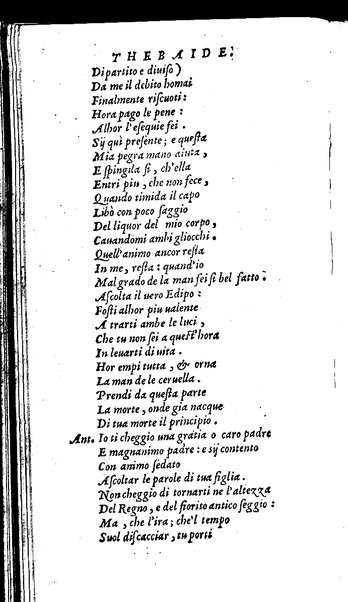 THEBAIDE.
Dipartito e diuiso)
Da me il debito homai
Finalmente riscuoti:
Hora pago le pene:
Alhor l'esequie fei.
Sij quì presente; e questa
Mia pegra mano aiuta,
E spingila sì, ch'ella
Entri piu, che non fece,
Quando timida il capo
Libò con poco saggio
Del liquor del mio corpo,
Cauandomi ambi gliocchi.
Quell'animo ancor resta
In me, resta: quand'io
Malgrado de la man fei sì bel fatto.
Ascolta il uero Edipo:
Fosti alhor piu ualente
A trarti ambe le luci,
Che tu non sei a quest'hora
In leuarti di uita.
Hor empi tutta, & orna
La man de le ceruella.
Prendi da questa parte
La morte, onde gia nacque
Di tua morte il principio.
Ant. Io ti cheggio una gratia o caro padre
E magnanimo padre: e sij contento
Con animo sedato
Ascoltar le parole di tua figlia.
Non cheggio di tornarti ne l'altezza
Del Regno, e del fiorito antico seggio:
Ma, che l'ira; che'l tempo
Suol discacciar, tu porti